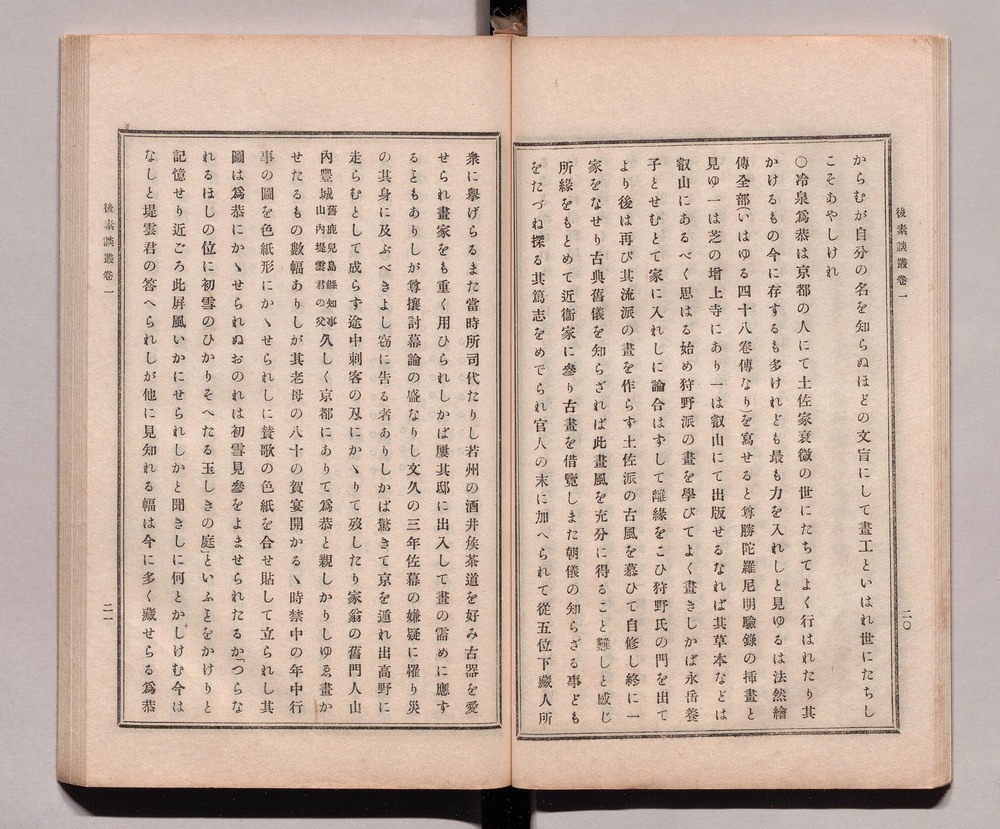 後素談叢卷一
二〇
からむが自分の名を知らぬほどの文盲にして畫工といはれ世にたちし
こそあやしけれ
〇冷泉爲恭は京都の人にて土佐家衰微の世にたちてよく行はれたり其
かけるもの今に存するも多けれども最も力を入れしと見ゆるは法然繪
傳全部(いはゆる四十八卷傳なり)を寫せると尊勝陀羅尼明驗錄の挿畫と
見ゆ一は芝の增上寺にあり一は叡山にて出版せるなれば其草本などは
叡山にあるべく思はる始め狩野派の畫を學びてよく畫きしかば永岳養
子とせむとて家に入れしに論合はずして離緣をこひ狩野氏の門を出て
より後は再び其流派の畫を作らず土佐派の古風を慕ひて自修し終に一
家をなせり古典舊儀を知らざれば此畫風を充分に得ること難しと感じ
所緣をもとめて近衞家に參り古畫を借覽しまた朝儀の知らざる事ども
をたづね探る其篤志をめでられ官人の末に加へられて從五位下藏人所
衆に擧げらるまた當時所司代たりし若州の酒井侯茶道を好み古器を愛
せられ畫家をも重く用ひられしかば屢其邸に出入して畫の需めに應ず
るともありしが尊攘討幕論の盛なりし文久の三年佐幕の嫌疑に罹り災
の其身に及ぶべきよし窃に告る者ありしかば驚きて京を遁れ出高野に
走らむとして成らず途中刺客の刄にかゝりて歿したり家翁の舊門人山
內豐城舊鹿兒島縣知事山內堤雲君の父久しく京都にありて爲恭と親しかりしゆゑ畫か
せたるもの數幅ありしが其老母の八十の賀宴開かるゝ時禁中の年中行
事の圖を色紙形にかゝせられしに賛歌の色紙を合せ貼して立られし其
圖は爲恭にかゝせられぬおのれは初雪見參をよませられたるか「つらな
れるほしの位に初雪のひかりそへたる玉しきの庭」といふとをかけりと
記憶せり近ごろ此屛風いかにせられしかと聞きしに何とかしけむ今は
なしと堤雲君の答へられしが他に見知れる幅は今に多く藏せらる爲恭
後素談叢卷一
二一